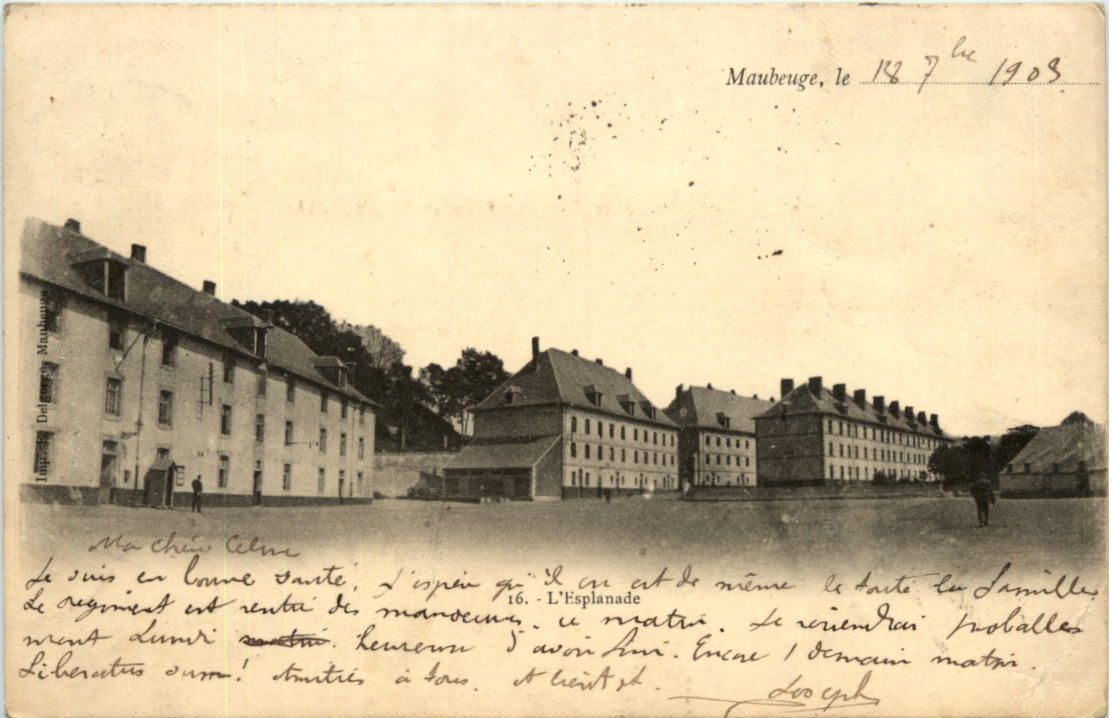 Maubeuge, le 18 7bre 1903
Imp. Delgorge, Maubeuge
Ma chère
Je suis en bonne santé. J'espère qu'il en est de même de toute la famille.
16. - L'Esplanade
Le régiment est rentré des manoeuvres ce matin. Je reviendrai probable
ment Lundi matin. heureux d'avoir fini. Encore 1 demain matin.
Liberatus sum! Amitiés à tous. A bientôt.
Joseph